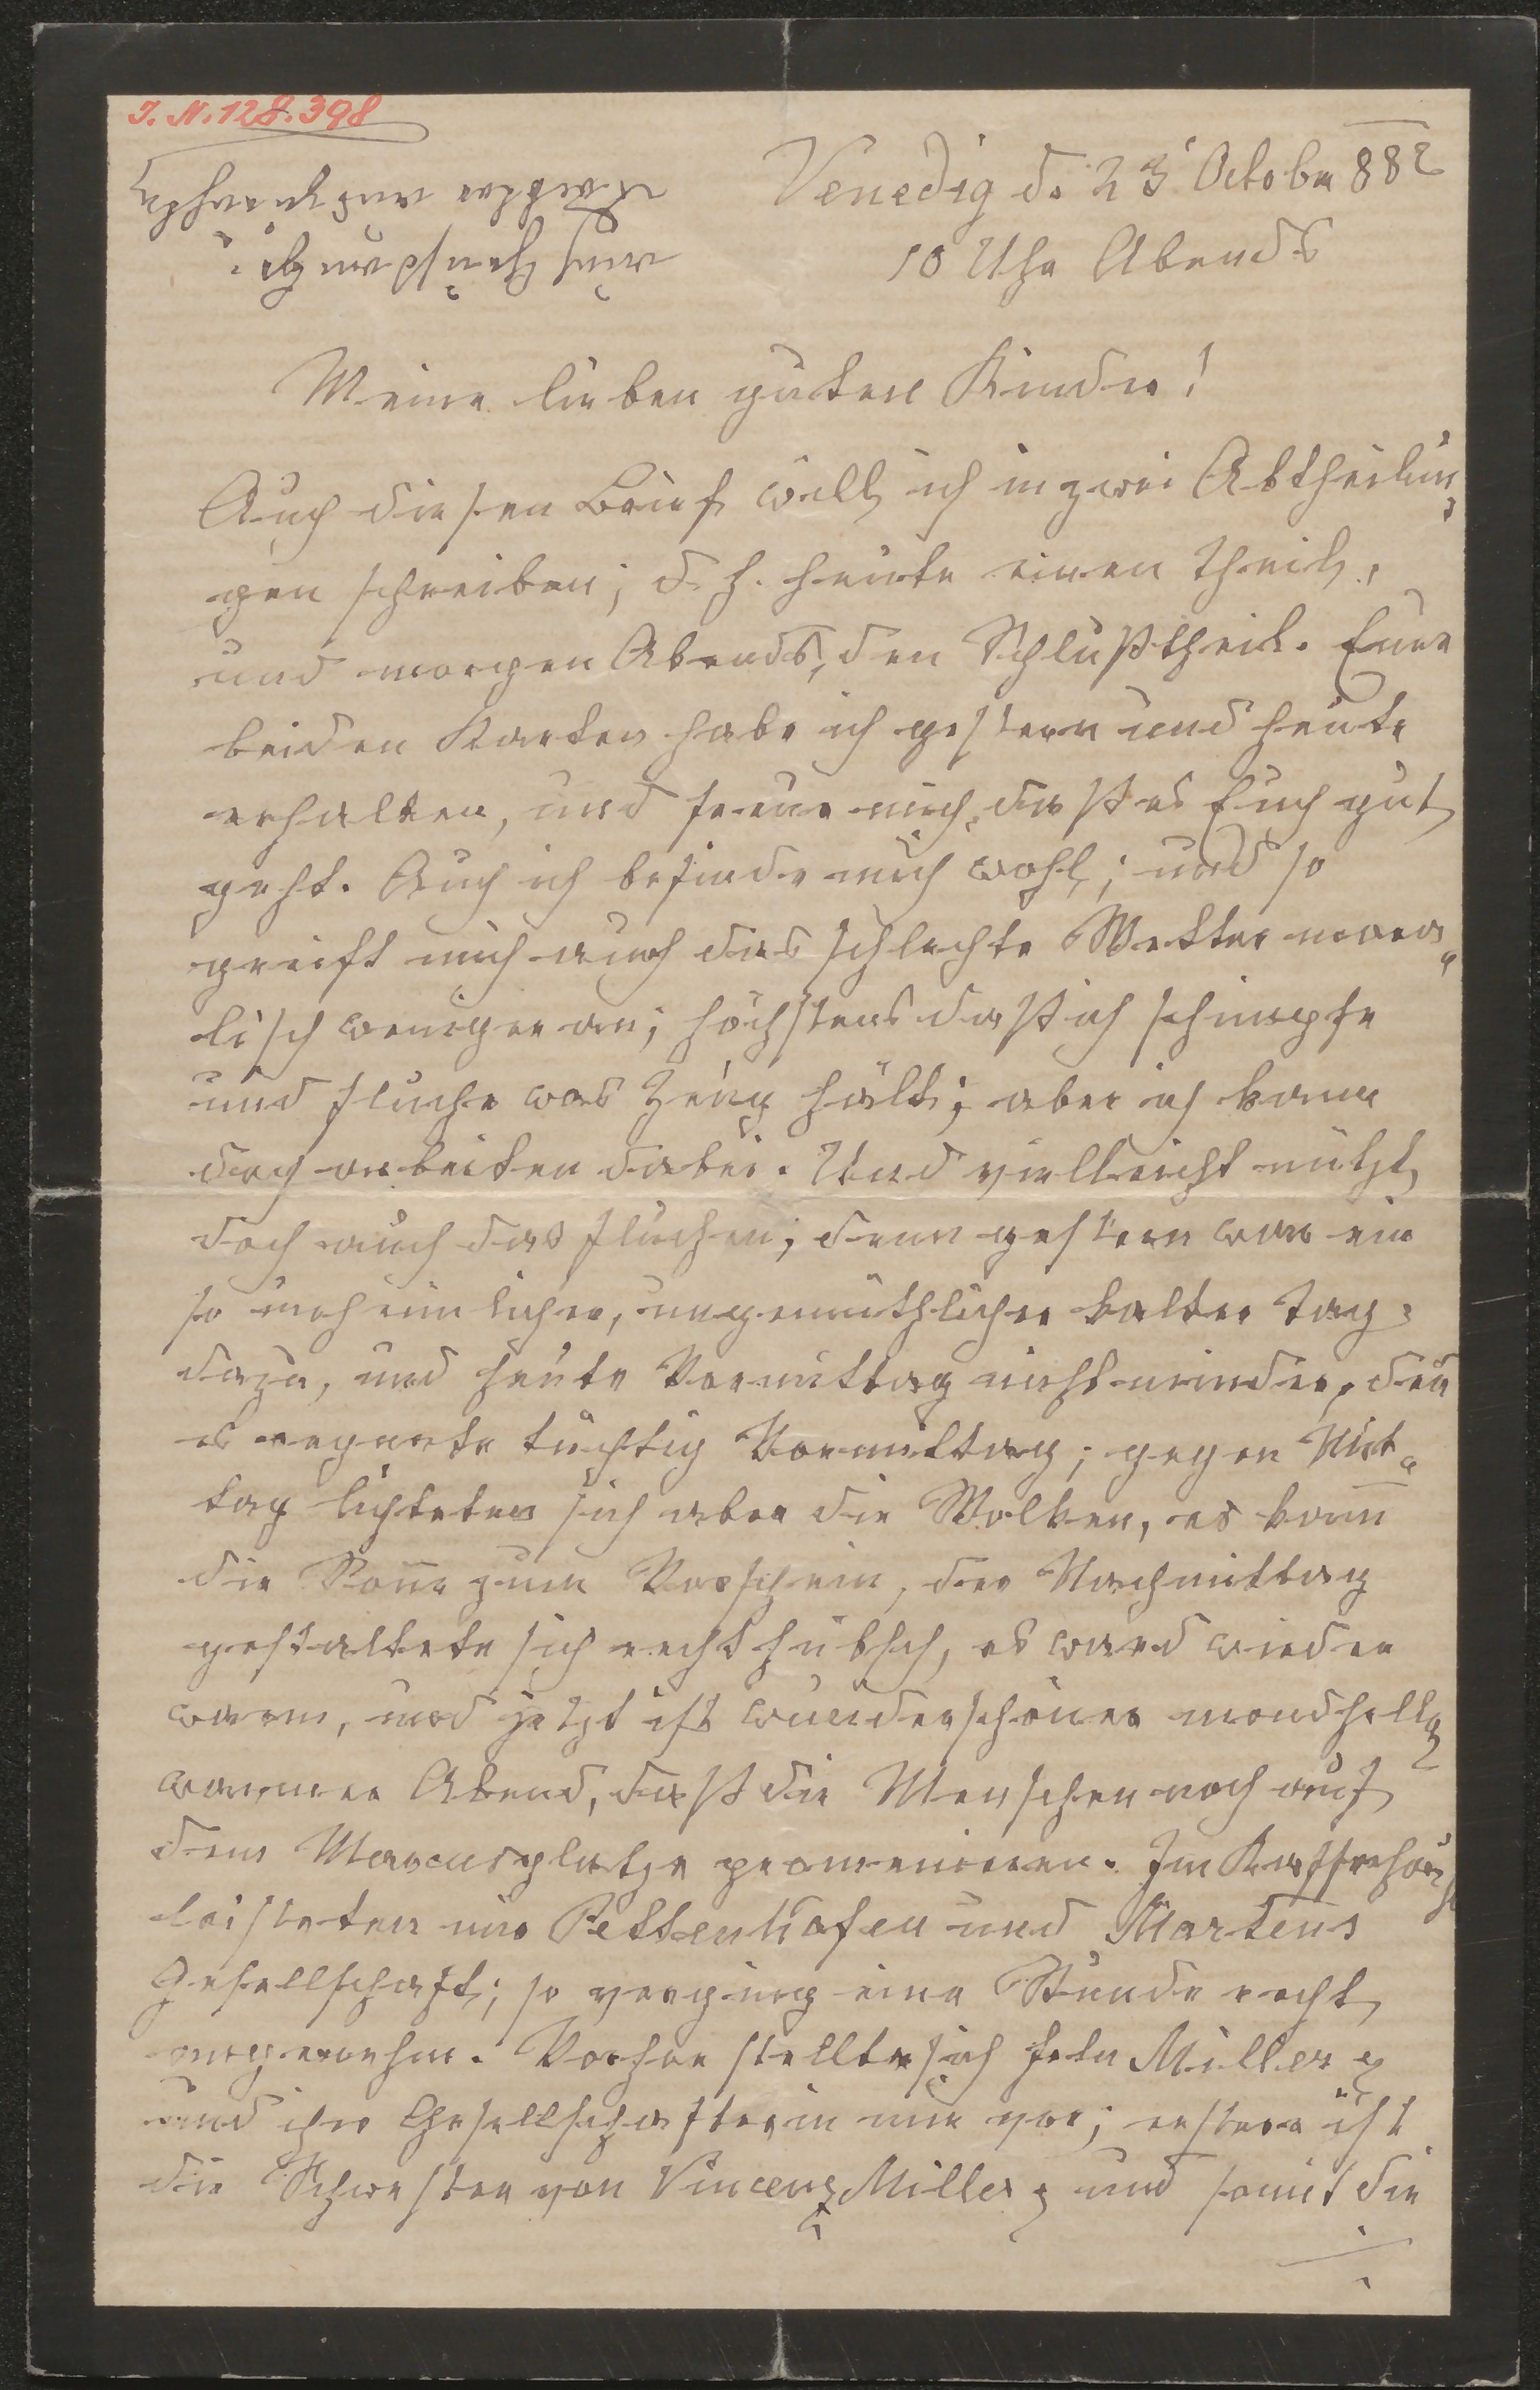 I. N. 128.398
Venedig d. 23t October 882
10 Uhr Abends
Meine lieben guten Kinder!
Auch diesen Brief will ich in zwei Abtheilun-
gen schreiben; d. h. heute einen Theil,
und morgen Abends, den Schlußtheil. Eure
beiden Karten habe ich gestern und heute
erhalten, und freue mich, daß es Euch gut
geht. Auch ich befinde mich wohl; und so
greift mich auch das schlechte Wetter mora-
lisch weniger an; höchstens daß ich schimpfe
und fluche was Zeug hält; aber ich kann
doch arbeiten dabei. Und vielleicht nützt
doch auch das fluchen; denn gestern war ein
so unheimlicher, ungemüthlicher kalter Tag
dazu, und heute Vormittag nicht minder, den
es regnete tüchtig Vormittag; gegen Mit-
tag lichteten sich aber die Wolken, es kam̄
die Son̄e zum Vorschein, der Nachmittag
gestaltete sich recht hübsch, es ward wieder
warm, und jetzt ist wunderschöner mondheller
warmer Abend, daß die Menschen noch auf
dem Marcusplatze promeniren. Im Kaffeehause
leisteten mir Pettenkofen und Martens
Gesellschaft; so verging eine Stunde recht
angenehm. Vorher stellte sich Frln Miller
und ihre Gesellschafterin mir vor; erstere ist
die Schwester von Vincenz Miller und somit die
./.